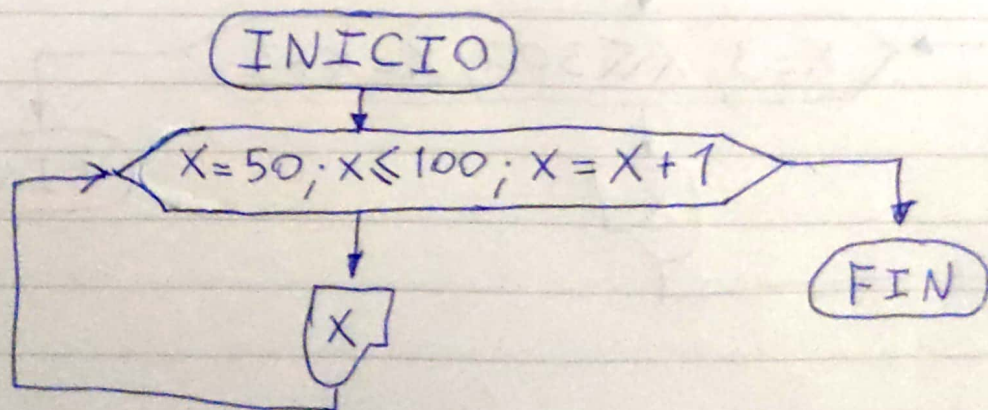 INICIO
X=50; X≤100; X = X + 1
FIN
X